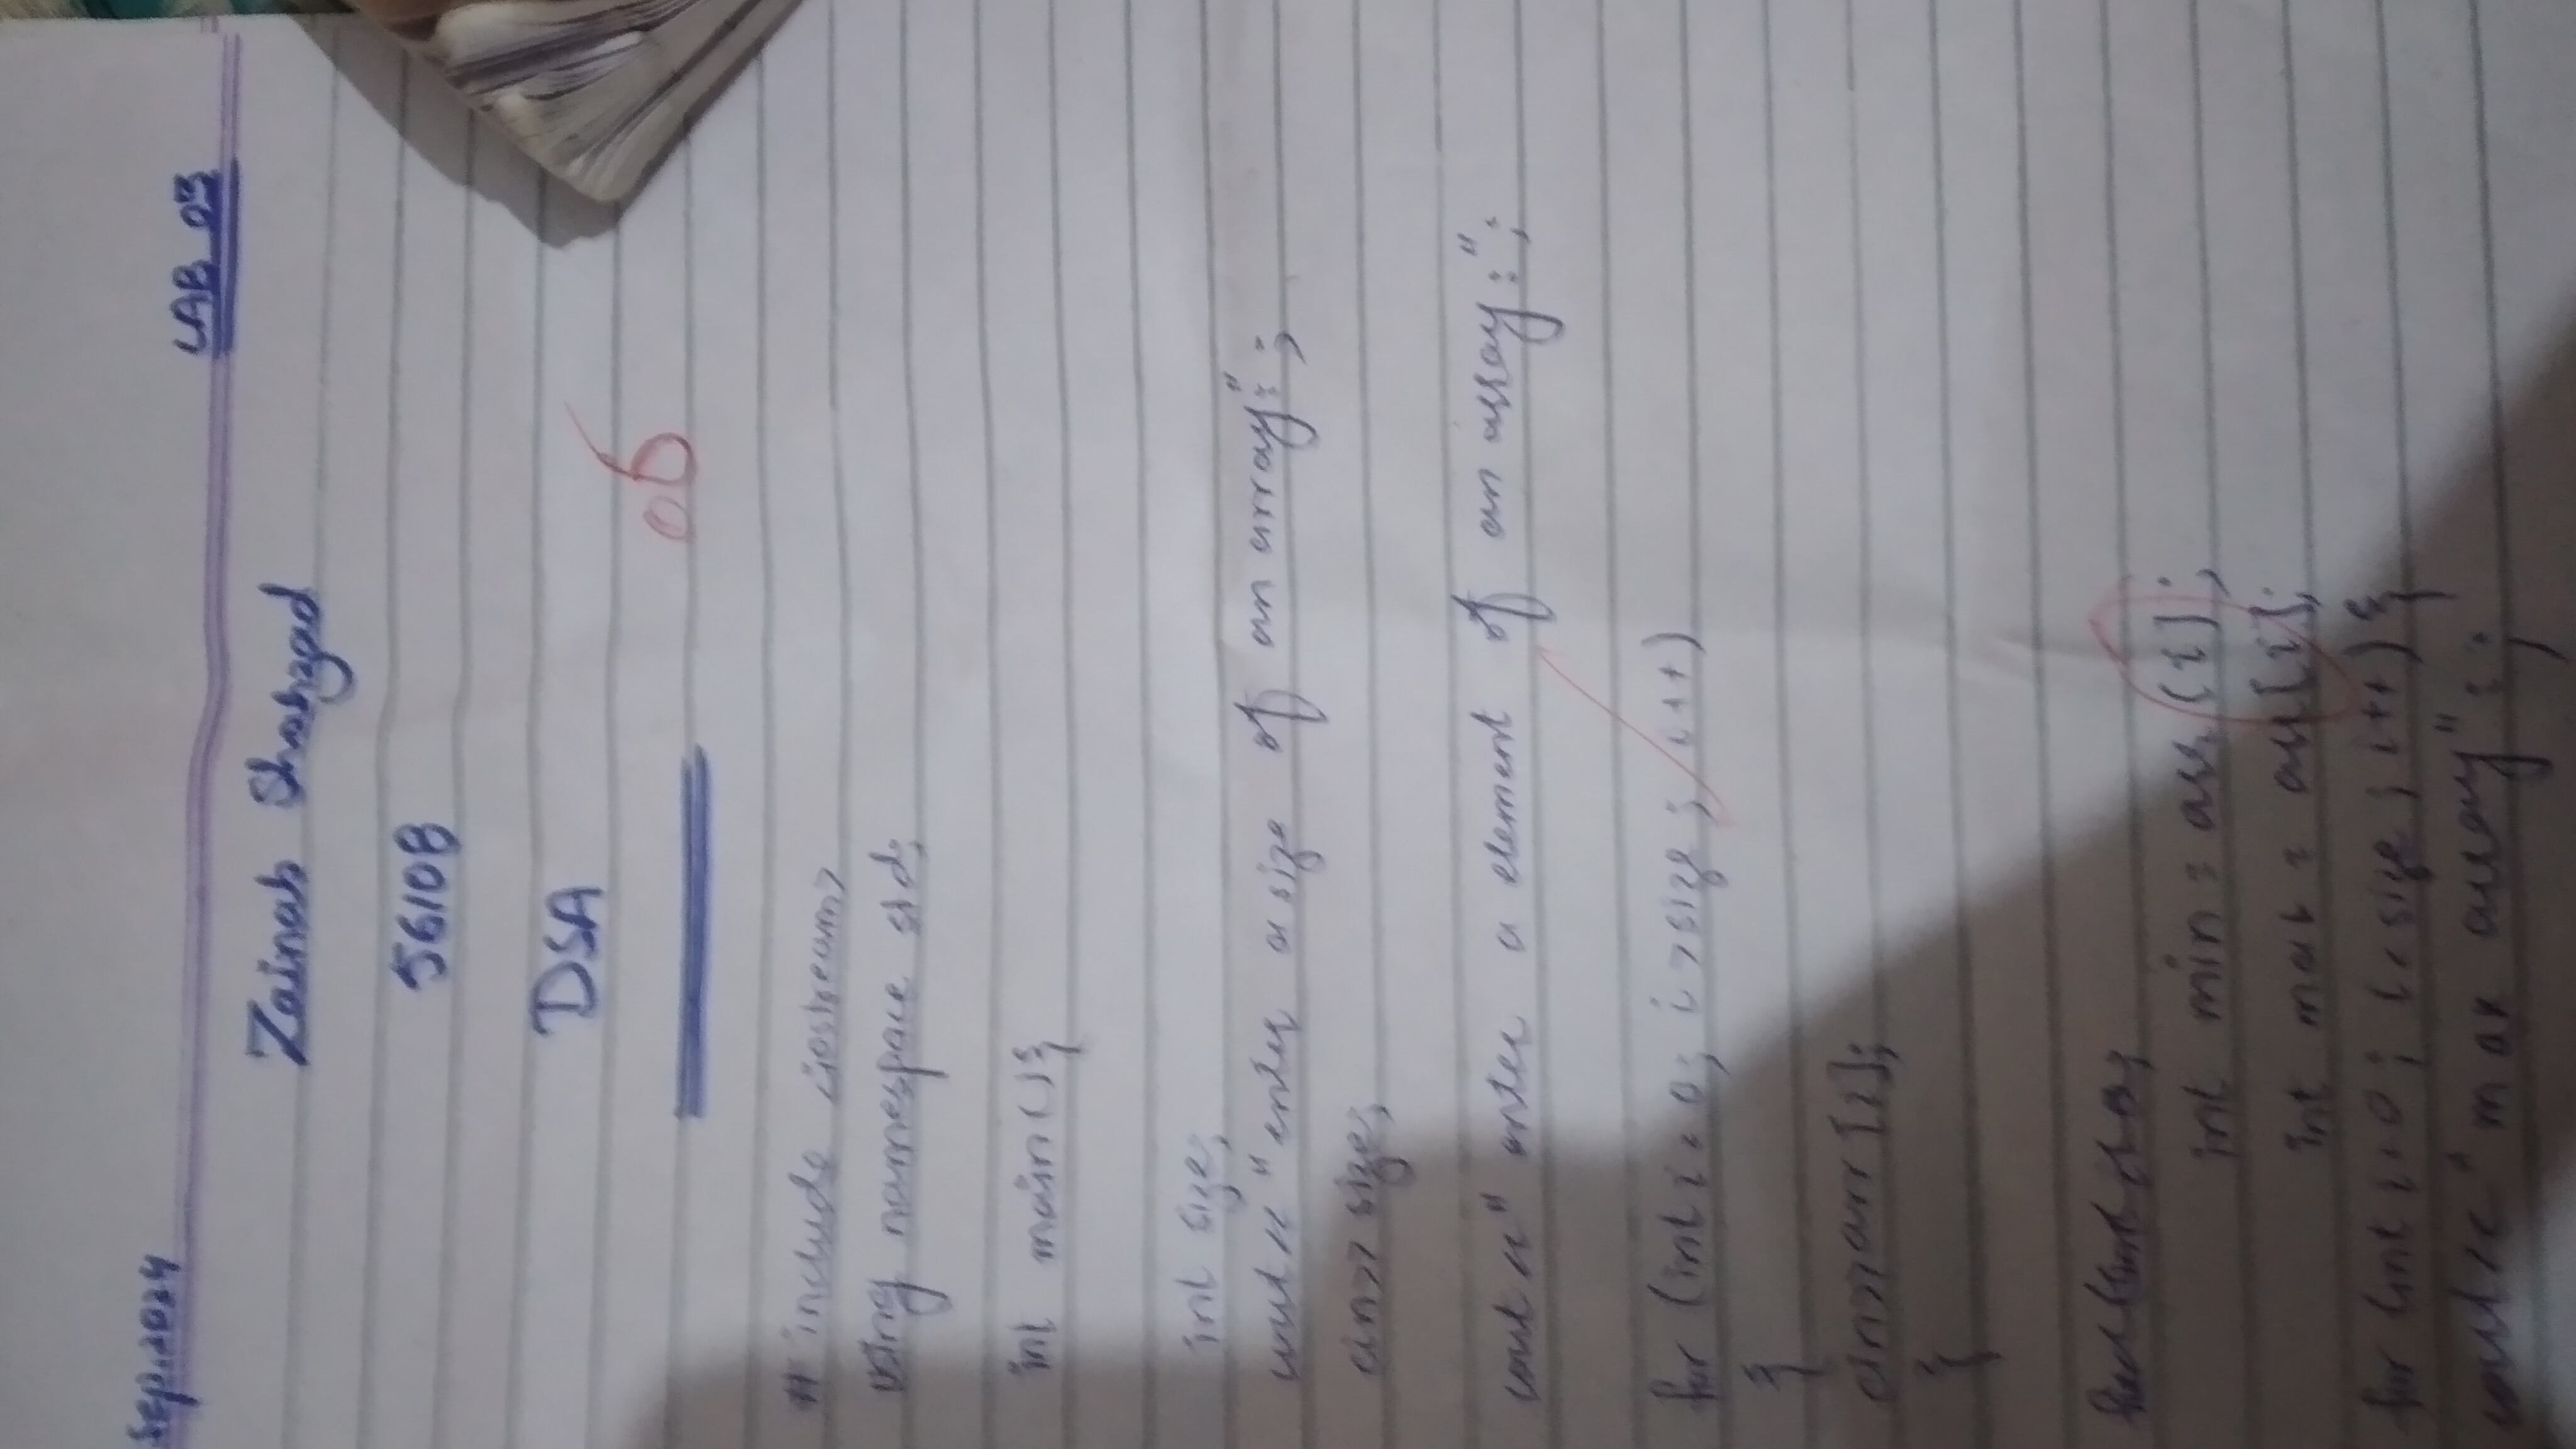 Sep.2024
LAB 03
Zainab Shahzad
56108
DSA
06
# include <iostream>
using namespace std;
int main(){
int size;
cout << "enter a size of an array:";
cin>> size;
cout << " enter a element of an array:";
for (int i=0; i>size; i++)
{
cin>>arr[i];
}
int min = arr[i];
int max = arr[i];
for (int i=0; i<size; i++){
cout<< "max array":;